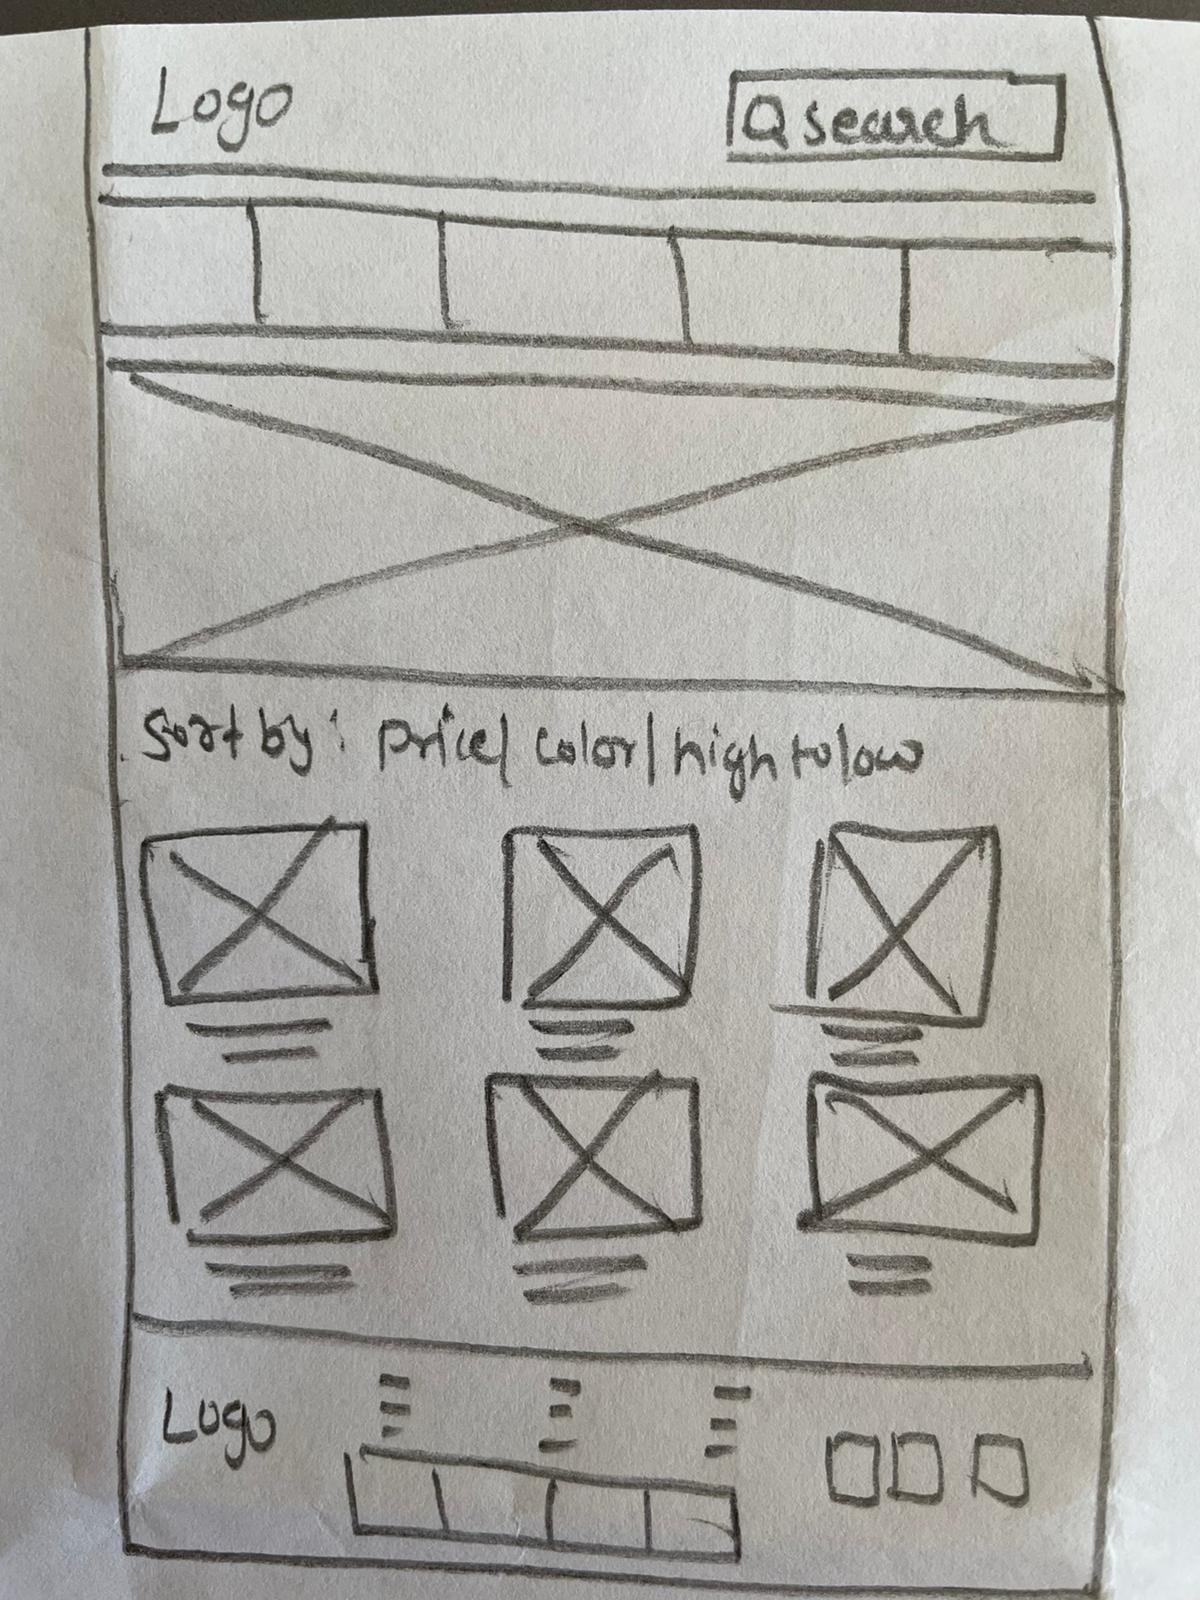 Logo
Q search
Sort by: price/ color/ high to low
Logo